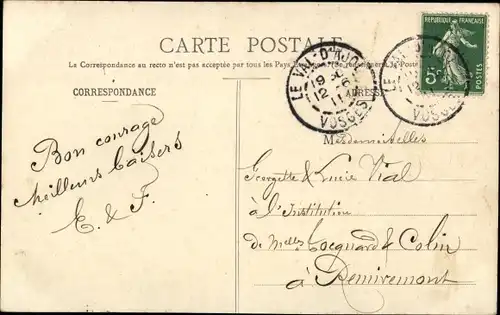 CARTE POSTALE
La Correspondance au recto n'est pas acceptée par tous les Pays
CORRESPONDANCE
ADRESSE
LE VAL-D'AJOL
12
11
VOSGES
REPUBLIQUE FRANÇAISE
5c
POSTES
Bon courage
Meilleurs baisers
E. & F.
Mesdemoiselles
Georgette & Lucie Vial
à l'Institution
de Melles Cocquard & Colin
à Remiremont